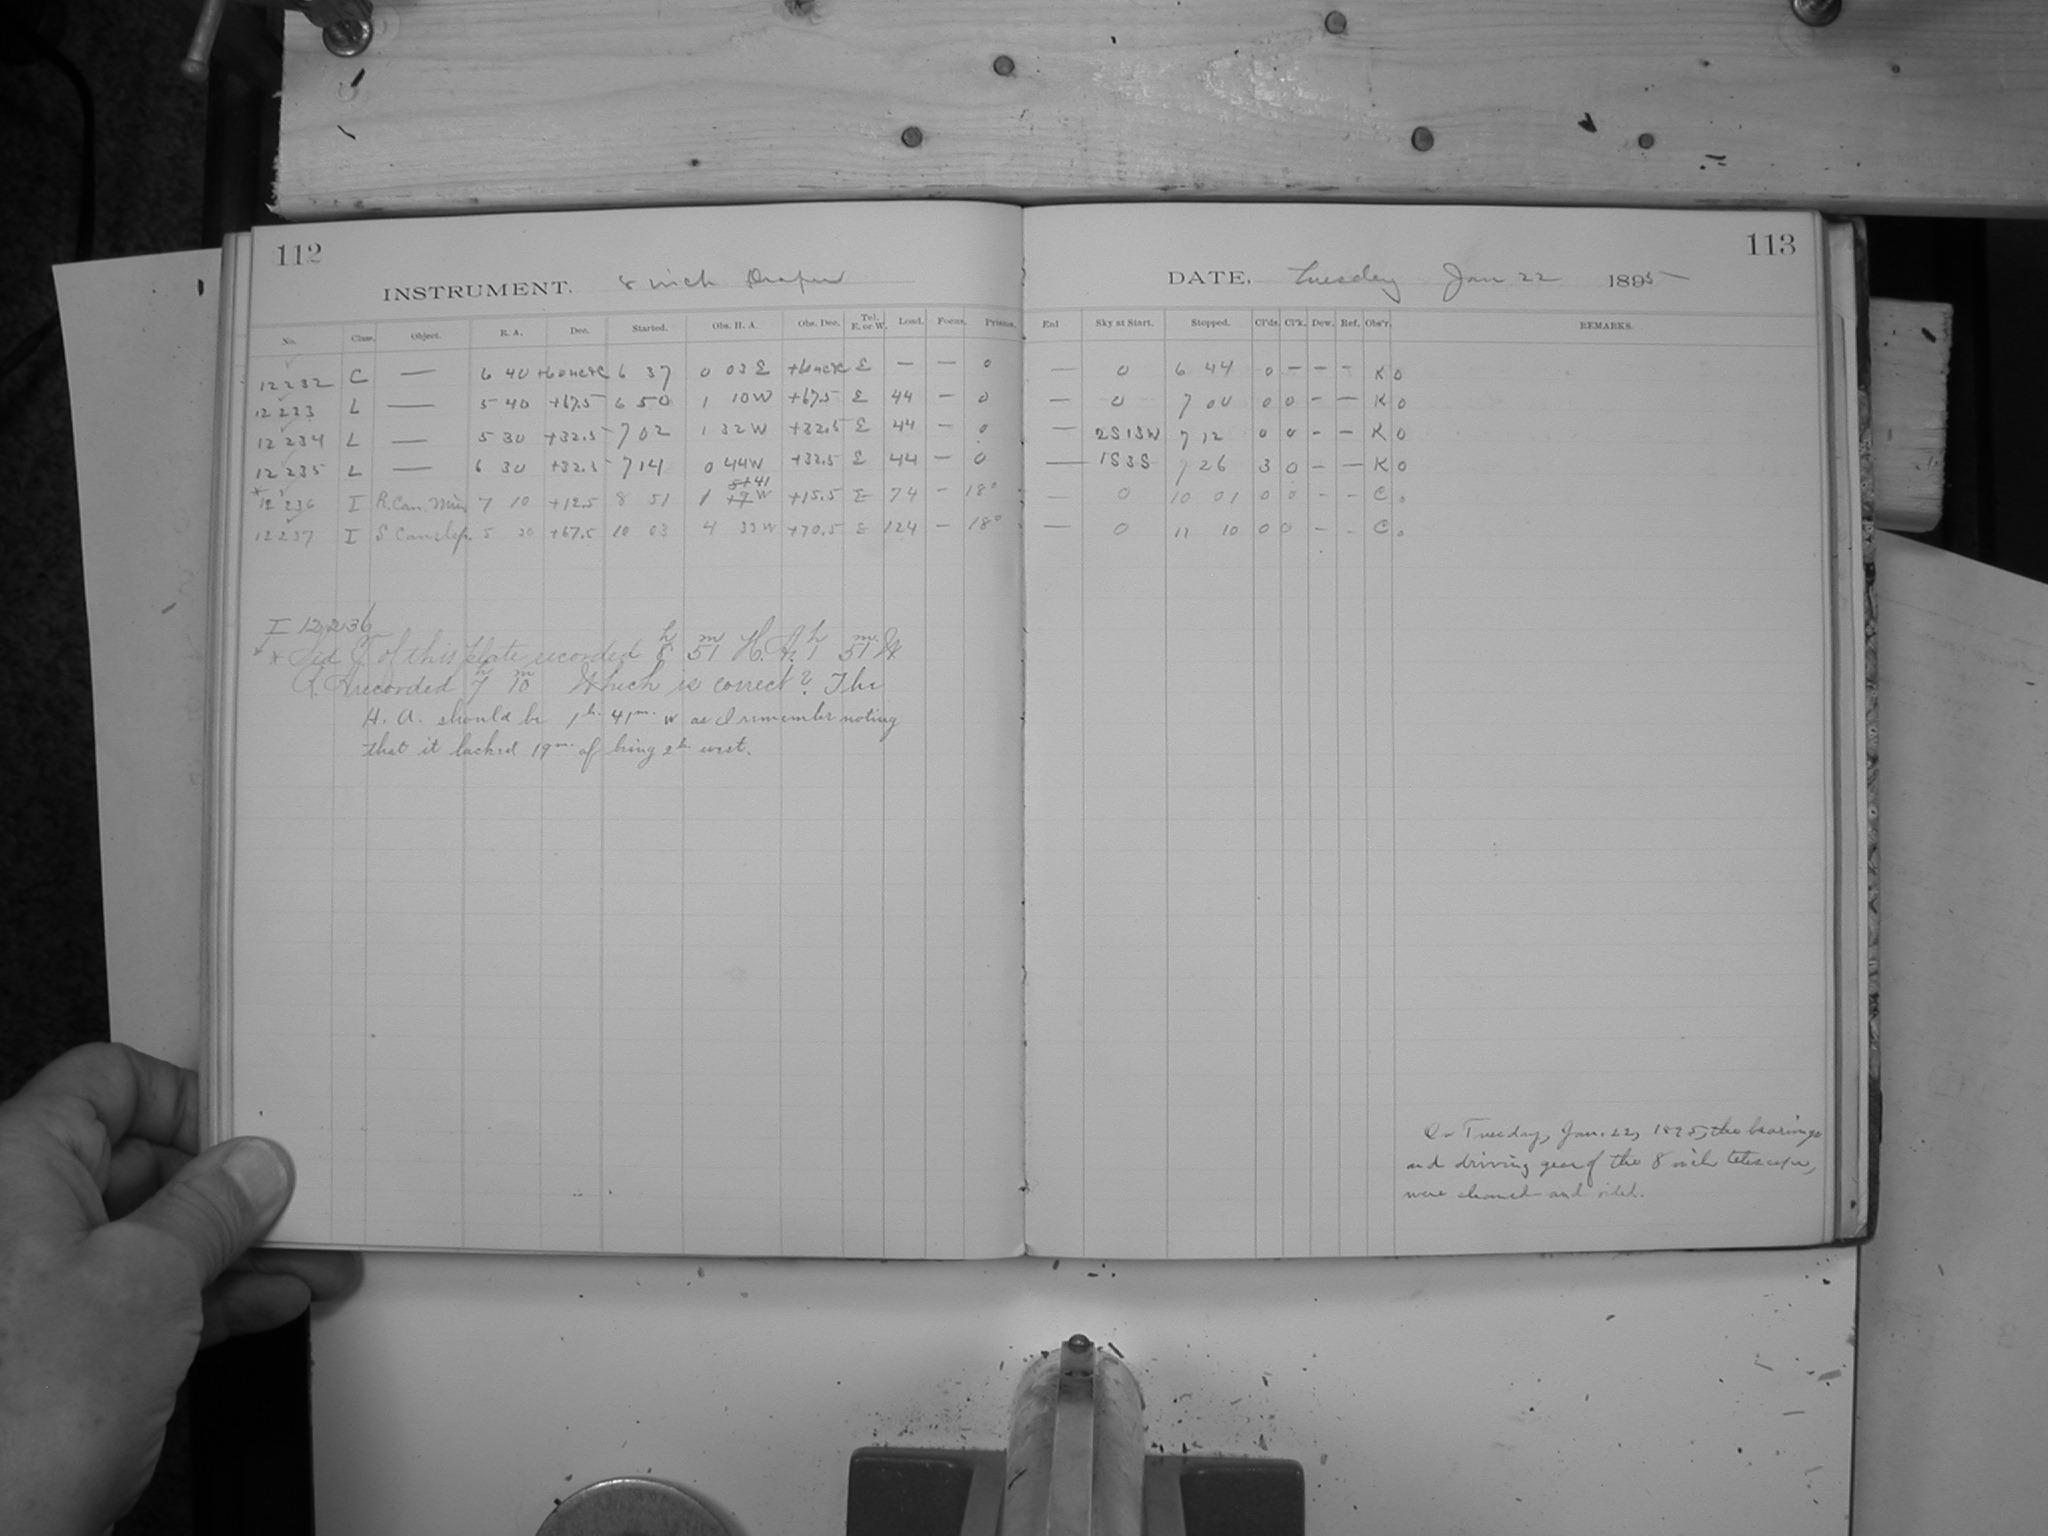 112
INSTRUMENT. 8 inch Draper
No. Class. Object. R. A. Dec. Started. Obs. H. A. Obs. Dec. Tel. E. or W. Load. Focus. Prisms.
12232 C — 6 40 6 37 0 03 E E — — 0
12233 L — 5 40 +67.5 6 50 1 10 W +67.5 E 44 — 0
12234 L — 5 30 +32.5 7 02 1 32 W +32.5 E 44 — 0
12235 L — 6 30 +32.5 7 14 0 44 W +32.5 E 44 — 0
* 12236 I R. Can. Min. 7 10 +12.5 8 51 1 41 W +15.5 E 74 - 18°
12237 I S Camelop. 5 30 +67.5 10 03 4 33 W +70.5 E 124 — 18°
I 12236
* Sid T of this plate recorded 8h 51m H. A. 1h 51m W
R. A recorded 7h 10m Which is correct? The
H. A. should be 1h. 41m. W as I remember noting
that it lacked 19m. of being 2h. west.
113
DATE, Tuesday Jan 22 1895
Enl Sky at Start. Stopped. Cl'ds. Cl'k. Dew. Ref. Obs'r. REMARKS.
— 0 6 44 0 — — — K 0
— 0 7 00 0 0 - — K 0
— 2S1SW 7 12 0 0 - — K 0
— 1S3S 7 26 3 0 — — K 0
— 0 10 01 0 0 - - C 0
— 0 11 10 0 0 - - C 0
On Tuesday, Jan. 22, 1895, the bearings
and driving gear of the 8 inch telescope,
were cleaned and oiled.